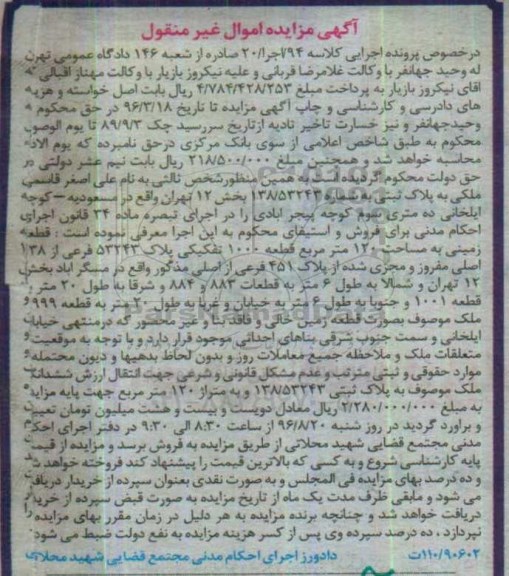 آگهی مزایده اموال غیر منقول
درخصوص پرونده اجرایی کلاسه ۹۴/اجرا/۲۰ صادره از شعبه ۱۴۶ دادگاه عمومی تهران
له وحید جهانفر با وکالت غلامرضا قربانی و علیه نیکروز بازیار با وکالت مهناز اقبالی که
اقای نیکروز بازیار به پرداخت مبلغ ۴/۷۸۴/۴۲۸/۲۵۳ ریال بابت اصل خواسته و هزینه
های دادرسی و کارشناسی و چاپ آگهی مزایده تا تاریخ ۹۶/۳/۱۸ در حق محکوم له
وحیدجهانفر و نیز خسارت تاخیر تادیه ازتاریخ سررسید چک ۸۹/۹/۳ تا یوم الوصول
محکوم به طبق شاخص اعلامی از سوی بانک مرکزی درحق نامبرده که یوم الاداء
محاسبه خواهد شد و همچنین مبلغ ۲۱۸/۵۰۰/۰۰۰ ریال بابت نیم عشر دولتی در
حق دولت محکوم گردیده اند به همین منظورشخص ثالثی به نام علی اصغر قاسمی
ملکی به پلاک ثبتی به شماره ۱۳۸/۵۳۲۴۳ بخش ۱۲ تهران واقع در مسعودیه – کوچه
ایلخانی ده متری سوم کوچه پیجر ابادی را در اجرای تبصره ماده ۳۴ قانون اجرای
احکام مدنی برای فروش و استیفای محکوم به این اجرا معرفی نموده است : قطعه
زمینی به مساحت ۱۲۰ متر مربع قطعه ۱۰۰۰ تفکیکی پلاک ۵۳۲۴۳ فرعی از ۱۳۸
اصلی مفروز و مجزی شده از پلاک ۴۵۱ فرعی از اصلی مذکور واقع در مسگر اباد بخش
۱۲ تهران و شمالا به طول ۶ متر به قطعات ۸۸۳ و ۸۸۴ و شرقا به طول ۲۰ متر به
قطعه ۱۰۰۱ و جنوبا به طول ۶ متر به خیابان و غربا به طول ۲۰ متر به قطعه ۹۹۹
ملک موصوف بصورت قطعه زمین خالی و فاقد بنا و غیر محصور که درمنتهی خیابان
ایلخانی و سمت جنوب شرقی بناهای احداثی موجود قرار دارد و با توجه به موقعیت و
متعلقات ملک و ملاحظه جمیع معاملات روز و بدون لحاظ بدهیها و دیون محتمله و
موارد حقوقی و ثبتی مترتب و عدم مشکل قانونی و شرعی جهت انتقال ارزش ششدانگ
ملک موصوف به پلاک ثبتی ۱۳۸/۵۳۲۴۳ و به متراژ ۱۲۰ متر مربع جهت پایه مزایده
به مبلغ ۲/۲۸۰/۰۰۰/۰۰۰ ریال معادل دویست و بیست و هشت میلیون تومان تعیین
و براورد گردید در روز شنبه ۹۶/۸/۲۰ از ساعت ۸:۳۰ الی ۹:۳۰ در دفتر اجرای احکام
مدنی مجتمع قضایی شهید محلاتی از طریق مزایده به فروش برسد و مزایده از قیمت
پایه کارشناسی شروع و به کسی که بالاترین قیمت را پیشنهاد کند فروخته خواهد شد
و ده درصد بهای مزایده فی المجلس و به صورت نقدی بعنوان سپرده از خریدار دریافت
می شود و مابقی ظرف مدت یک ماه از تاریخ مزایده به صورت قبض سپرده از خریدار
دریافت خواهد شد و چنانچه برنده مزایده به هر دلیل در زمان مقرر بهای مزایده را
نپردازد ، ده درصد سپرده وی پس از کسر هزینه مزایده به نفع دولت ضبط می شود
۱۱۰/۹۰۶۰۲ت دادورز اجرای احکام مدنی مجتمع قضایی شهید محلاتی